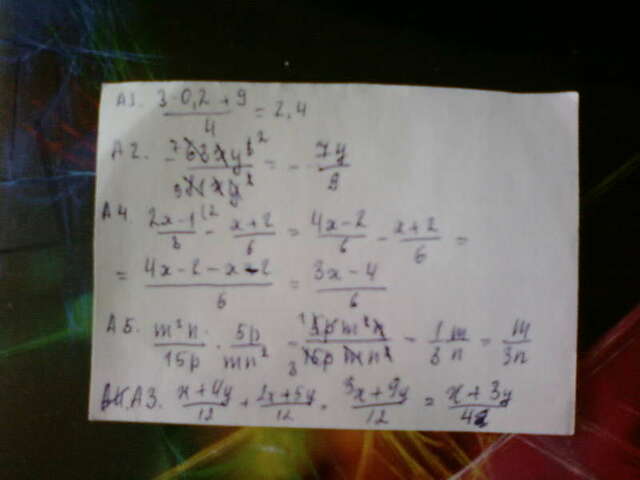 А1. (3·0,2+9)/4 = 2,4
А2. = - 7y/9
А4. (2x-1)/3 - (x+2)/6 = (4x-2)/6 - (x+2)/6 =
= (4x-2-x-2)/6 = (3x-4)/6
А5. m²n/15p · 5p/mn² = 5pm²n/15pmn² = 1m/3n = m/3n
А3. (x+4y)/12 + (2x+5y)/12 = (3x+9y)/12 = (x+3y)/4